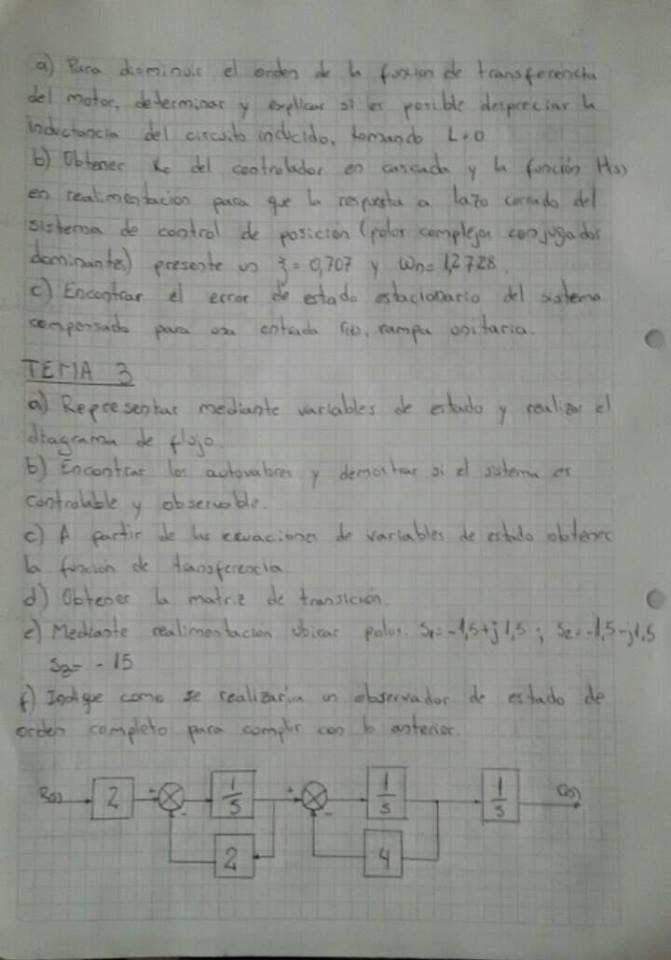 a) Para disminuir el orden de la funcion de transferencia
del motor, determinar y explicar si es posible despreciar la
inductancia del circuito inducido, tomando L=0
b) Obtener Kc del controlador en cascada y la función H(s)
en realimentacion para que la respuesta a lazo cerrado del
sistema de control de posición (polos complejos conjugados
dominantes) presente un ξ=0,707 y ωn=1,2728.
c) Encontrar el error de estado estacionario del sistema
compensado para una entrada r(t), rampa unitaria.
TEMA 3
a) Representar mediante variables de estado y realizar el
diagrama de flujo.
b) Encontrar los autovalores y demostrar si el sistema es
controlable y observable.
c) A partir de las ecuaciones de variables de estado obtener
la función de transferencia.
d) Obtener la matriz de transición.
e) Mediante realimentacion ubicar polos. S1=-1,5+j1,5 ; S2=-1,5-j1,5
S3=-15
f) Indique como se realizaria un observador de estado de
orden completo para cumplir con lo anterior.
R(s) 2 + - 1/s + - 1/s 1/s C(s)
2 4